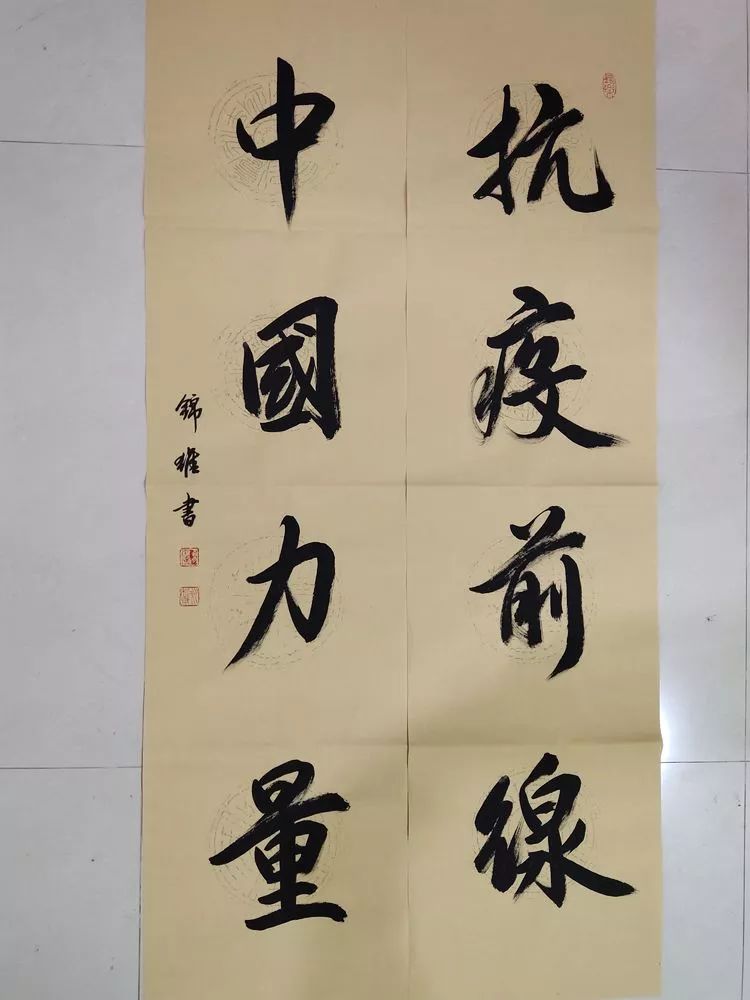 抗疫前線
中國力量
錦雅書